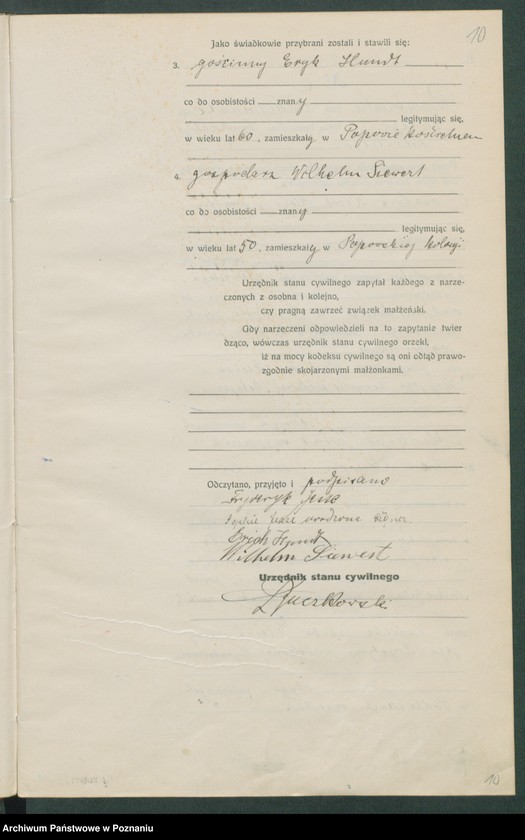 10
Jako świadkowie przybrani zostali i stawili się:
3. gościnny Eryk Hundt
co do osobistości znany
legitymując się,
w wieku lat 60, zamieszkały w Popowie Kościelnem
4. gospodarz Wilhelm Siewert
co do osobistości znany
legitymując się,
w wieku lat 50, zamieszkały w Popowskiej
Urzędnik stanu cywilnego zapytał każdego z narze-
czonych z osobna i kolejno,
czy pragną zawrzeć związek małżeński.
Gdy narzeczeni odpowiedzieli na to zapytanie twier
dząco, wówczas urzędnik stanu cywilnego orzekł,
iż na mocy kodeksu cywilnego są oni odtąd prawo-
zgodnie skojarzonymi małżonkami.
Odczytano, przyjęto i podpisano
Fryderyk
urodzona
Erich Hundt
Wilhelm Siewert
Urzędnik stanu cywilnego
10
Archiwum Państwowe w Poznaniu